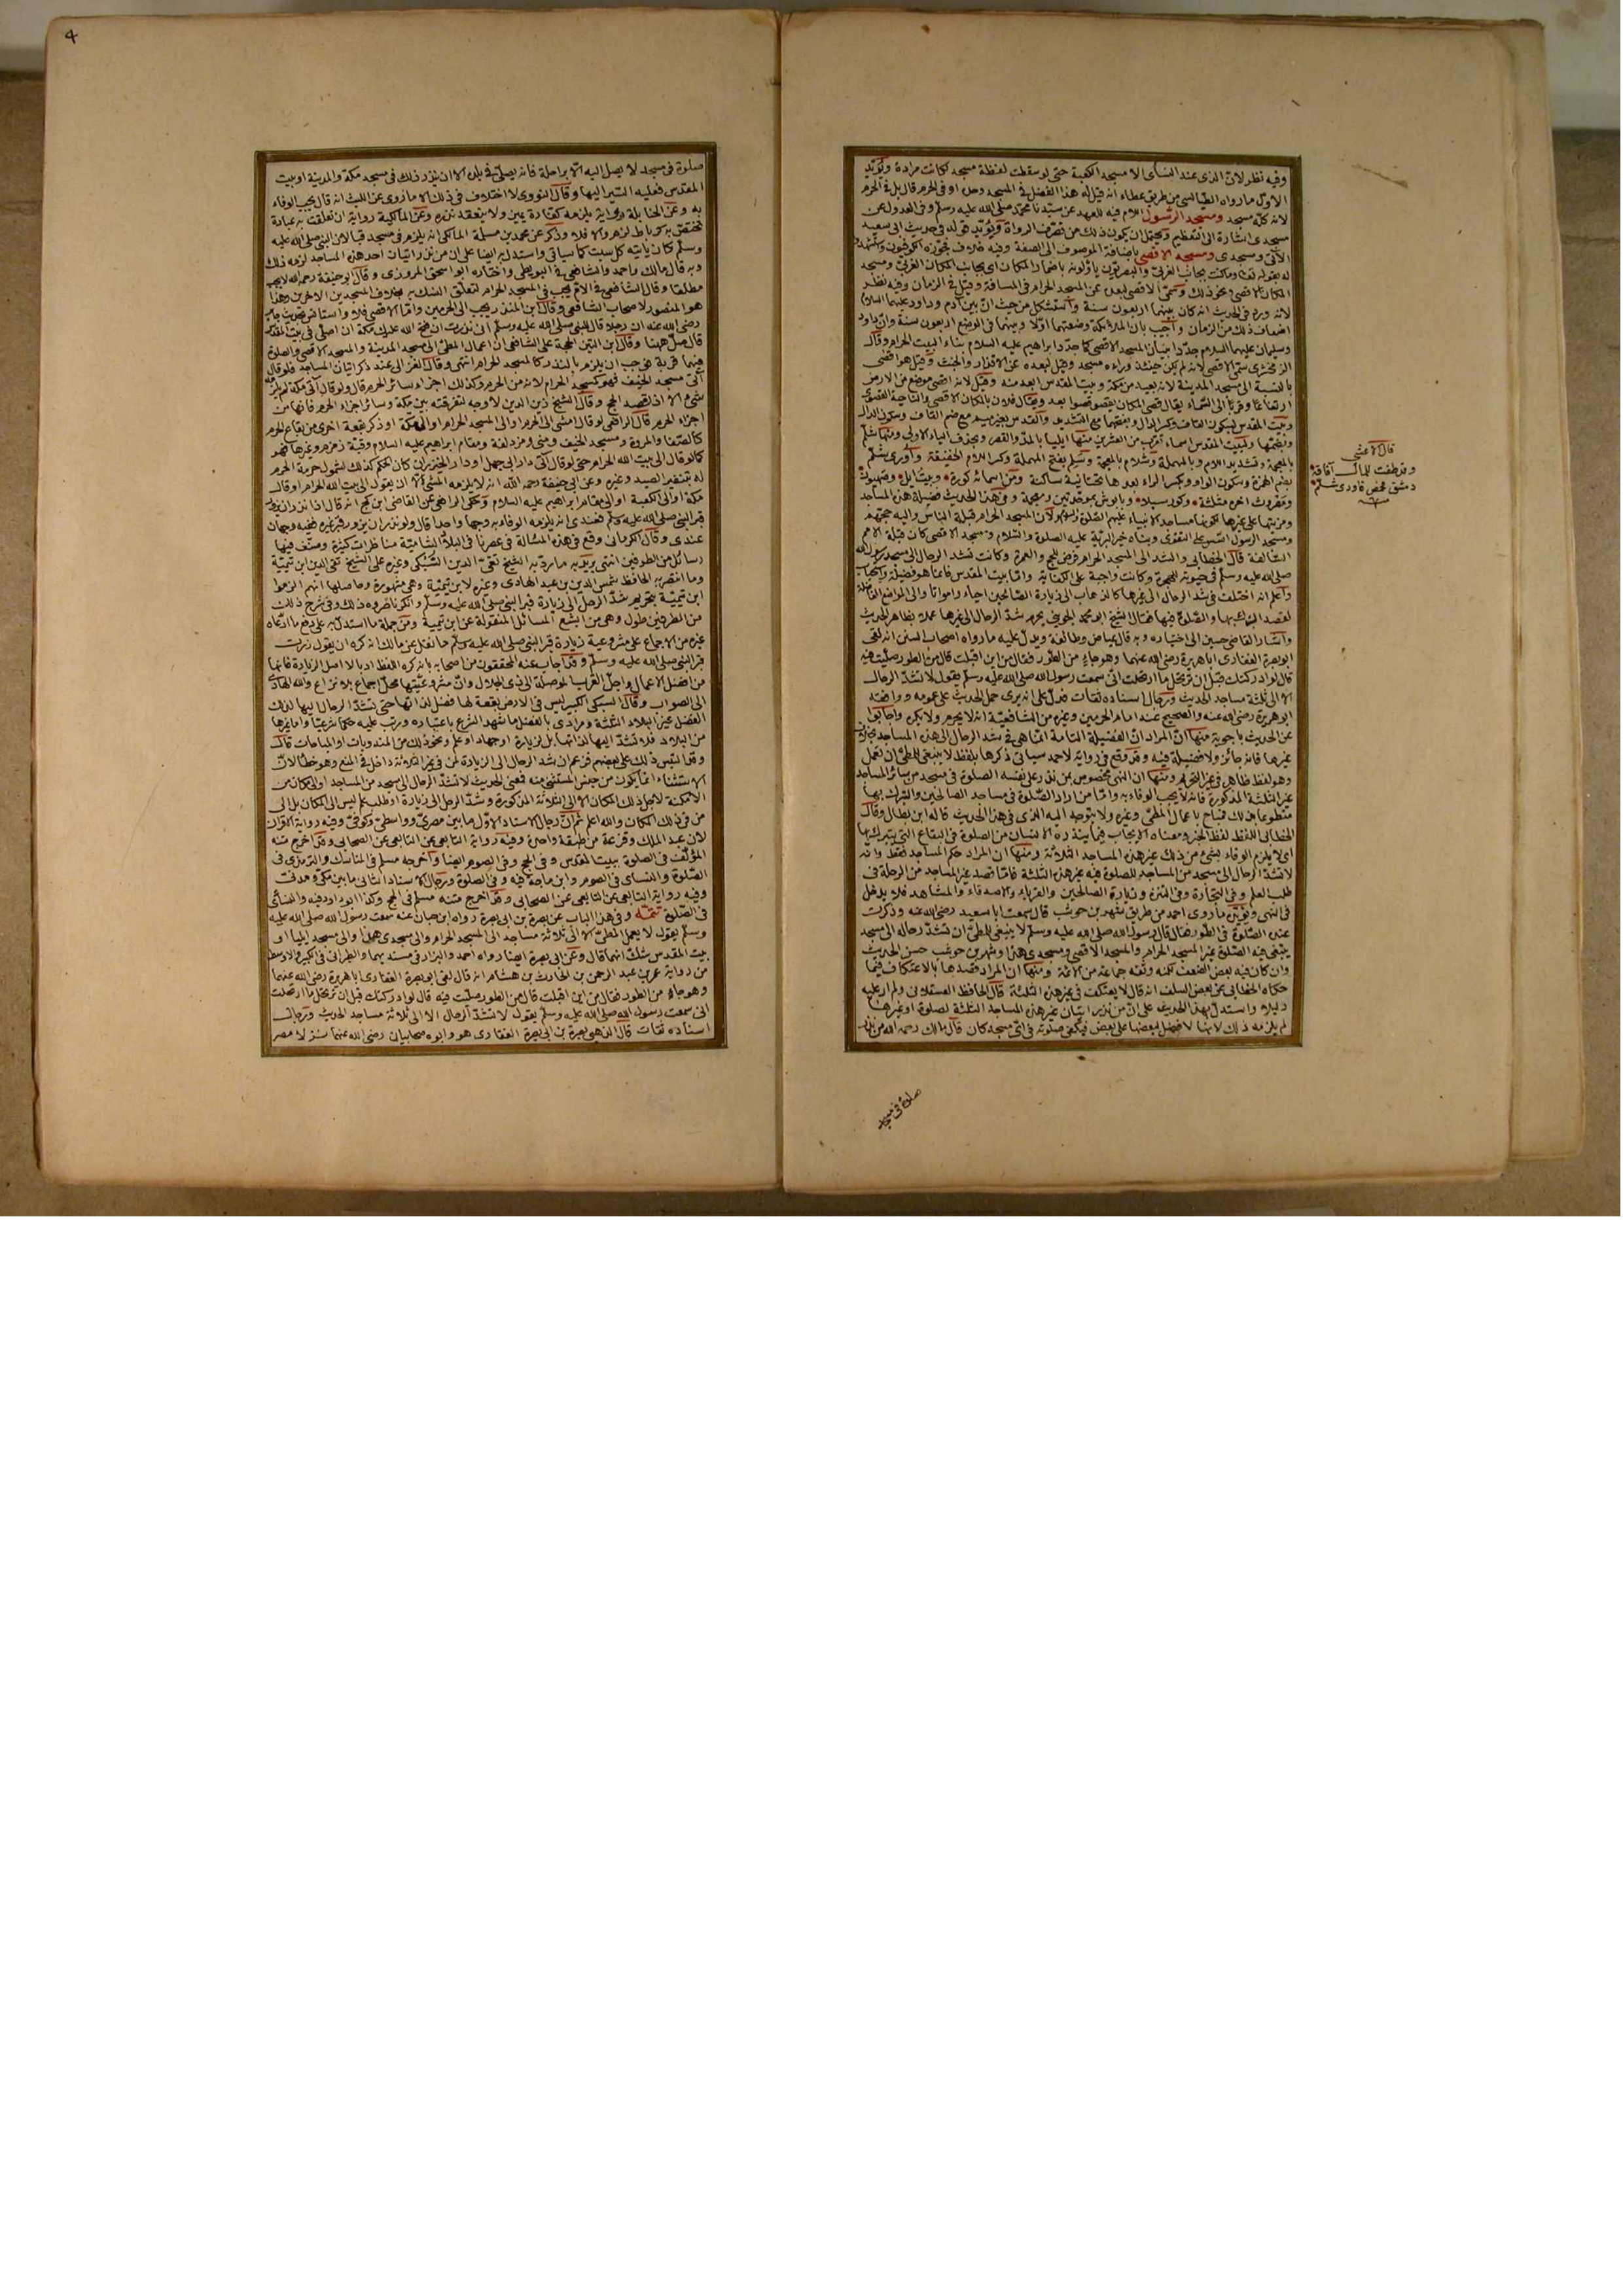 وفيه نظر لان الذى عند النسائى الا مسجد الكعبة حتى لو سقطت لفظة مسجد لكانت مرادة ويؤيد
الاول ما رواه الطيالسى من طريق عطاء انه قيل له هذا الفضل فى المسجد وحده او فى الحرم قال بل فى الحرم
لانه كله مسجد ومسجد الرسول اللام فيه للعهد عن سيدنا محمد صلى الله عليه وسلم وفى العدول عن
مسجدى اشارة الى التعظيم ويحتمل ان يكون ذلك من تصرف الرواة ويؤيده قوله فى حديث ابى سعيد
الآتى ومسجدى ومسجد الاقصى باضافة الموصوف الى الصفة وفيه خلاف فجوزه الكوفيون واستشهدوا
له بقوله تعالى وما كنت بجانب الغربى والبصريون ياؤلونه باضمار المكان اى بجانب المكان الغربى ومسجد
المكان الاقصى ونحو ذلك وسمى الاقصى لبعده عن المسجد الحرام فى المسافة وقيل فى الزمان وفيه نظر
لانه ورد فى الحديث انه كان بينهما اربعون سنة واستشكل من حيث ان بين آدم وداود عليهما السلام
اضعاف ذلك من الزمان واجيب بان الملائكة وضعتهما اولا وبينهما فى الوضع اربعون سنة وان داود
وسليمان عليهما السلام جددا بنيان المسجد الاقصى كما جدد ابراهيم عليه السلام بناء البيت الحرام وقال
الزمخشرى سمى الاقصى لانه لم يكن حينئذ وراءه مسجد وقيل لبعده عن الاقذار والخبث وقيل هو اقصى
بالنسبة الى مسجد المدينة لانه بعيد من مكة وبيت المقدس ابعد منه وقيل لانه اقصى موضع من الارض
ارتفاعا وقربا الى السماء يقال قصى المكان يقصو قصوا بعد ويقال فلان بالمكان الاقصى والناحية القصوى
وبيت المقدس بسكون القاف وكسر الدال وبفتحهما مع التشديد والقدس بغير ميم مع ضم القاف وسكون الدال
وبضمها ولبيت المقدس اسماء تقرب من العشرين منها ايليا بالمد والقصر وبحذف الياء الاولى ومنها شلم
بالمعجمة وتشديد اللام وبالمهملة وشلام بالمعجمة وسلم بفتح المهملة وكسر اللام الخفيفة واورى شلم
بضم الهمزة وسكون الواو وبكسر الراء بعدها تحتانية ساكنة ومن اسمائه كورة وبيت ايل وصهيون
ومصروث آخره مثلثة وكورسيلا وبابوش بموحدتين ومعجمة وفى هذا الحديث فضيلة هذه المساجد
ومزيتها على غيرها لكونها مساجد الانبياء عليهم الصلوة والسلام ولان المسجد الحرام قبلة الناس واليه حجهم
ومسجد الرسول اسس على التقوى وبناه خير البرية عليه الصلوة والسلام ومسجد الاقصى كان قبلة الامم
السالفة قال الخطابى والشد الى المسجد الحرام فرض للحج والعمرة وكانت تشد الرحال الى مسجد رسول الله
صلى الله عليه وسلم فى حيوته للهجرة وكانت واجبة على الكفاية واما بيت المقدس فانما هو فضيلة واستحباب
واعلم انه اختلف فى شد الرحال الى غيرها كالذهاب الى زيارة الصالحين احياء وامواتا والى المواضع الفاضلة
لقصد التبرك بها والصلوة فيها فقال الشيخ ابو محمد الجوينى يحرم شد الرحال الى غيرها عملا بظاهر الحديث
واشار القاضى حسين الى اختياره وبه قال عياض وطائفة ويدل عليه ما رواه اصحاب السنن انه لقى
ابو بصرة الغفارى ابا هريرة رضى الله عنهما وهو جاء من الطور فقال من اين اقبلت قال من الطور صليت فيه
قال لو ادركتك قبل ان ترتحل ما ارتحلت انى سمعت رسول الله صلى الله عليه وسلم يقول لا تشد الرحال
الا الى ثلثة مساجد الحديث ورجال اسناده ثقات فدل على انه يرى حمل الحديث على عمومه ووافقه
ابو هريرة رضى الله عنه والصحيح عند امام الحرمين وغيره من الشافعية انه لا يحرم ولا يكره واجابوا
عن الحديث باجوبة منها ان المراد ان الفضيلة التامة انما هى فى شد الرحال الى هذه المساجد بخلاف
غيرها فانه جائز ولا فضيلة فيه وقد وقع فى رواية لاحمد سياتى ذكرها بلفظ لا ينبغى للمطى ان تعمل
وهو لفظ ظاهر فى غير التحريم ومنها ان النهى مخصوص بمن نذر على نفسه الصلوة فى مسجد من سائر المساجد
غير الثلثة المذكورة فانه لا يجب الوفاء به واما من اراد الصلوة فى مساجد الصالحين والتبرك بها
متطوعا بذلك فمباح باعمال المطى وغيره ولا يتوجه اليه الذى فى هذا الحديث قاله ابن بطال وقال
الخطابى اللفظ لفظ الخبر ومعناه الايجاب فيما ينذره الانسان من الصلوة فى البقاع التى يتبرك بها
اى لا يلزم الوفاء بشئ من ذلك غير هذه المساجد الثلاثة ومنها ان المراد حكم المساجد فقط وانه
لا تشد الرحال الى مسجد من المساجد للصلوة فيه غير هذه الثلثة فاما قصد غير المساجد من الرحلة فى
طلب العلم وفى التجارة وفى التنزه وزيارة الصالحين والقرباء والاصدقاء والمشاهد فلا يدخل
فى النهى ويؤيده ما روى احمد من طريق شهر بن حوشب قال سمعت ابا سعيد رضى الله عنه وذكرت
عنده الصلوة فى الطور فقال قال رسول الله صلى الله عليه وسلم لا ينبغى للمطى ان تشد رحاله الى مسجد
يبتغى فيه الصلوة غير المسجد الحرام والمسجد الاقصى ومسجدى هذا وشهر بن حوشب حسن الحديث
وان كان فيه بعض الضعف لكنه وثقه جماعة من الائمة ومنها ان المراد قصدها بالاعتكاف فيما
حكاه الخطابى عن بعض السلف انه قال لا يعتكف فى غير هذه الثلثة قال الحافظ العسقلانى ولم ار عليه
دليلا واستدل بهذا الحديث على ان من نذر اتيان غير هذه المساجد الثلثة لصلوة او غيرها
لم يلزمه ذلك لانها لا فضل لبعضها على بعض فيكفى صلوته فى اى مسجد كان قال مالك رحمه الله من نذر
قال الاعشى
وقد طفت للمال آفاقه
دمشق فحمص فاورى شلم
صلوة فى مسجد
4
صلوة فى مسجد لا يصل اليه الا براحلة فانه يصلى فى بلده الا ان ينذر ذلك فى مسجد مكة والمدينة او بيت
المقدس فعليه السير اليها وقال النووى لا اختلاف فى ذلك الا ما روى عن الليث انه قال يجب الوفاء
به وعن الحنابلة رواية يلزمه كفارة يمين ولا ينعقد نذره وعن المالكية رواية ان تعلقت به عبادة
تختص به كرباط لزم والا فلا وذكر عن محمد بن مسلمة المالكى انه يلزم فى مسجد قبا لان النبى صلى الله عليه
وسلم كان ياتيه كل سبت كما سياتى واستدل به ايضا على ان من نذر اتيان احد هذه المساجد لزمه ذلك
وبه قال مالك واحمد والشافعى فى البويطى واختاره ابو اسحق المروزى وقال ابو حنيفة رحمه الله لا يجب
مطلقا وقال الشافعى فى الام يجب فى المسجد الحرام لتعلق النسك به بخلاف المسجدين الاخرين وهذا
هو المنصور لاصحاب الشافعى وقال ابن المنذر يجب الى الحرمين واما الاقصى فلا واستانس بحديث جابر
رضى الله عنه ان رجلا قال للنبى صلى الله عليه وسلم انى نذرت ان فتح الله عليك مكة ان اصلى فى بيت المقدس
قال صل ههنا وقال ابن التين الحجة على الشافعى ان اعمال المطى الى مسجد المدينة والمسجد الاقصى والصلوة
فيهما قربة فوجب ان يلزم بالنذر كالمسجد الحرام انتهى وقال الغزالى عند ذكر اتيان المساجد فلو قال
آتى مسجد الخيف فهو كمسجد الحرام لانه من الحرم وكذلك اجزاء سائر الحرم قال ولو قال آتى مكة لم يلزمه
شئ الا اذا قصد الحج وقال الشيخ زين الدين لا وجه لتفرقته بين مكة وسائر اجزاء الحرم فانها من
اجزاء الحرم قال الرافعى لو قال امشى الى الحرم او الى المسجد الحرام او الى مكة او ذكر بقعة اخرى من بقاع الحرم
كالصفا والمروة ومسجد الخيف ومنى ومزدلفة ومقام ابراهيم عليه السلام وقبة زمزم وغيرها فهو
كما لو قال الى بيت الله الحرام حتى لو قال آتى دار ابى جهل او دار الخيزران كان الحكم كذلك لشمول حرمة الحرم
له بتنفير الصيد وغيره وعن ابى حنيفة رحمه الله انه لا يلزمه المشى الا ان يقول الى بيت الله الحرام او قال
مكة او الى الكعبة او الى مقام ابراهيم عليه السلام وحكى الرافعى عن القاضى ابن كج انه قال اذا نذر ان يزور
قبر النبى صلى الله عليه وسلم فعندى انه يلزمه الوفاء به وجها واحدا قال ولو نذر ان يزور قبر غيره ففيه وجهان
عندى وقال الكرمانى وقع فى هذه المسألة فى عصرنا فى البلاد الشامية مناظرات كثيرة وصنف فيها
رسائل من الطرفين انتهى يريد به ما رد به الشيخ تقى الدين السبكى وغيره على الشيخ تقى الدين ابن تيمية
وما انتصر به الحافظ شمس الدين بن عبد الهادى وغيره لابن تيمية وهى مشهورة وحاصلها انهم الزموا
ابن تيمية بتحريم شد الرحل الى زيارة قبر النبى صلى الله عليه وسلم وانكروا صورة ذلك وفى شرح ذلك
من الطرفين طول وهى من ابشع المسائل المنقولة عن ابن تيمية ومن جملة ما استدل به على دفع ما ادعاه
غيره من الاجماع على مشروعية زيارة قبر النبى صلى الله عليه وسلم ما نقل عن مالك انه كره ان يقول زرت
قبر النبى صلى الله عليه وسلم وقد اجاب عنه المحققون من اصحابه بانه كره اللفظ ادبا لا اصل الزيارة فانها
من افضل الاعمال واجل القرب الموصلة الى ذى الجلال وان مشروعيتها محل اجماع بلا نزاع والله الهادى
الى الصواب وقال السبكى الكبير ليس فى الارض بقعة لها فضل لذاتها حتى تشد الرحال اليها لذلك
الفضل غير البلاد الثلثة ومرادى بالفضل ما شهد الشرع باعتباره ورتب عليه حكما شرعيا واما غيرها
من البلاد فلا تشد اليها لذاتها بل لزيارة او جهاد او علم ونحو ذلك من المندوبات او المباحات قال
وقد التبس ذلك على بعضهم فزعم ان شد الرحال الى الزيارة لمن فى غير الثلاثة داخل فى المنع وهو خطأ لان
الاستثناء انما يكون من جنس المستثنى منه فمعنى الحديث لا تشد الرحال الى مسجد من المساجد او الى مكان من
الامكنة لاجل ذلك المكان الا الى الثلاثة المذكورة وشد الرحل الى زيارة او طلب علم ليس الى المكان بل الى
من فى ذلك المكان والله اعلم ثم ان رجال الاسناد الاول ما بين مصرى وواسطى وكوفى وفيه رواية الاقران
لان عبد الملك وقزعة من طبقة واحدة وفيه رواية التابعى عن التابعى عن الصحابى وقد اخرج متنه
المؤلف فى الصلوة ببيت المقدس وفى الحج وفى الصوم ايضا واخرجه مسلم فى المناسك والترمذى فى
الصلوة والنسائى فى الصوم وابن ماجة فيه وفى الصلوة ورجال الاسناد الثانى ما بين مكى ومدنى
وفيه رواية التابعى عن التابعى عن الصحابى وقد اخرج متنه مسلم فى الحج وكذا ابو داود فيه والنسائى
فى الصلوة تتمة وفى هذا الباب عن بصرة بن ابى بصرة رواه ابن حبان عنه سمعت رسول الله صلى الله عليه
وسلم يقول لا يعمل المطى الا الى ثلاثة مساجد الى المسجد الحرام والى مسجدى هذا والى مسجد ايليا او
بيت المقدس شك ايهما قال وعن ابى بصرة ايضا رواه احمد والبزار فى مسنديهما والطبرانى فى الكبير والاوسط
من رواية عمر بن عبد الرحمن بن الحارث بن هشام انه قال لقى ابو بصرة الغفارى ابا هريرة رضى الله عنهما
وهو جاء من الطور فقال من اين اقبلت قال من الطور صليت فيه قال لو ادركتك قبل ان ترتحل ما ارتحلت
انى سمعت رسول الله صلى الله عليه وسلم يقول لا تشد الرحال الا الى ثلاثة مساجد الحديث ورجال
اسناده ثقات قال الذهبى بصرة بن ابى بصرة الغفارى هو وابوه صحابيان رضى الله عنهما نزلا مصر